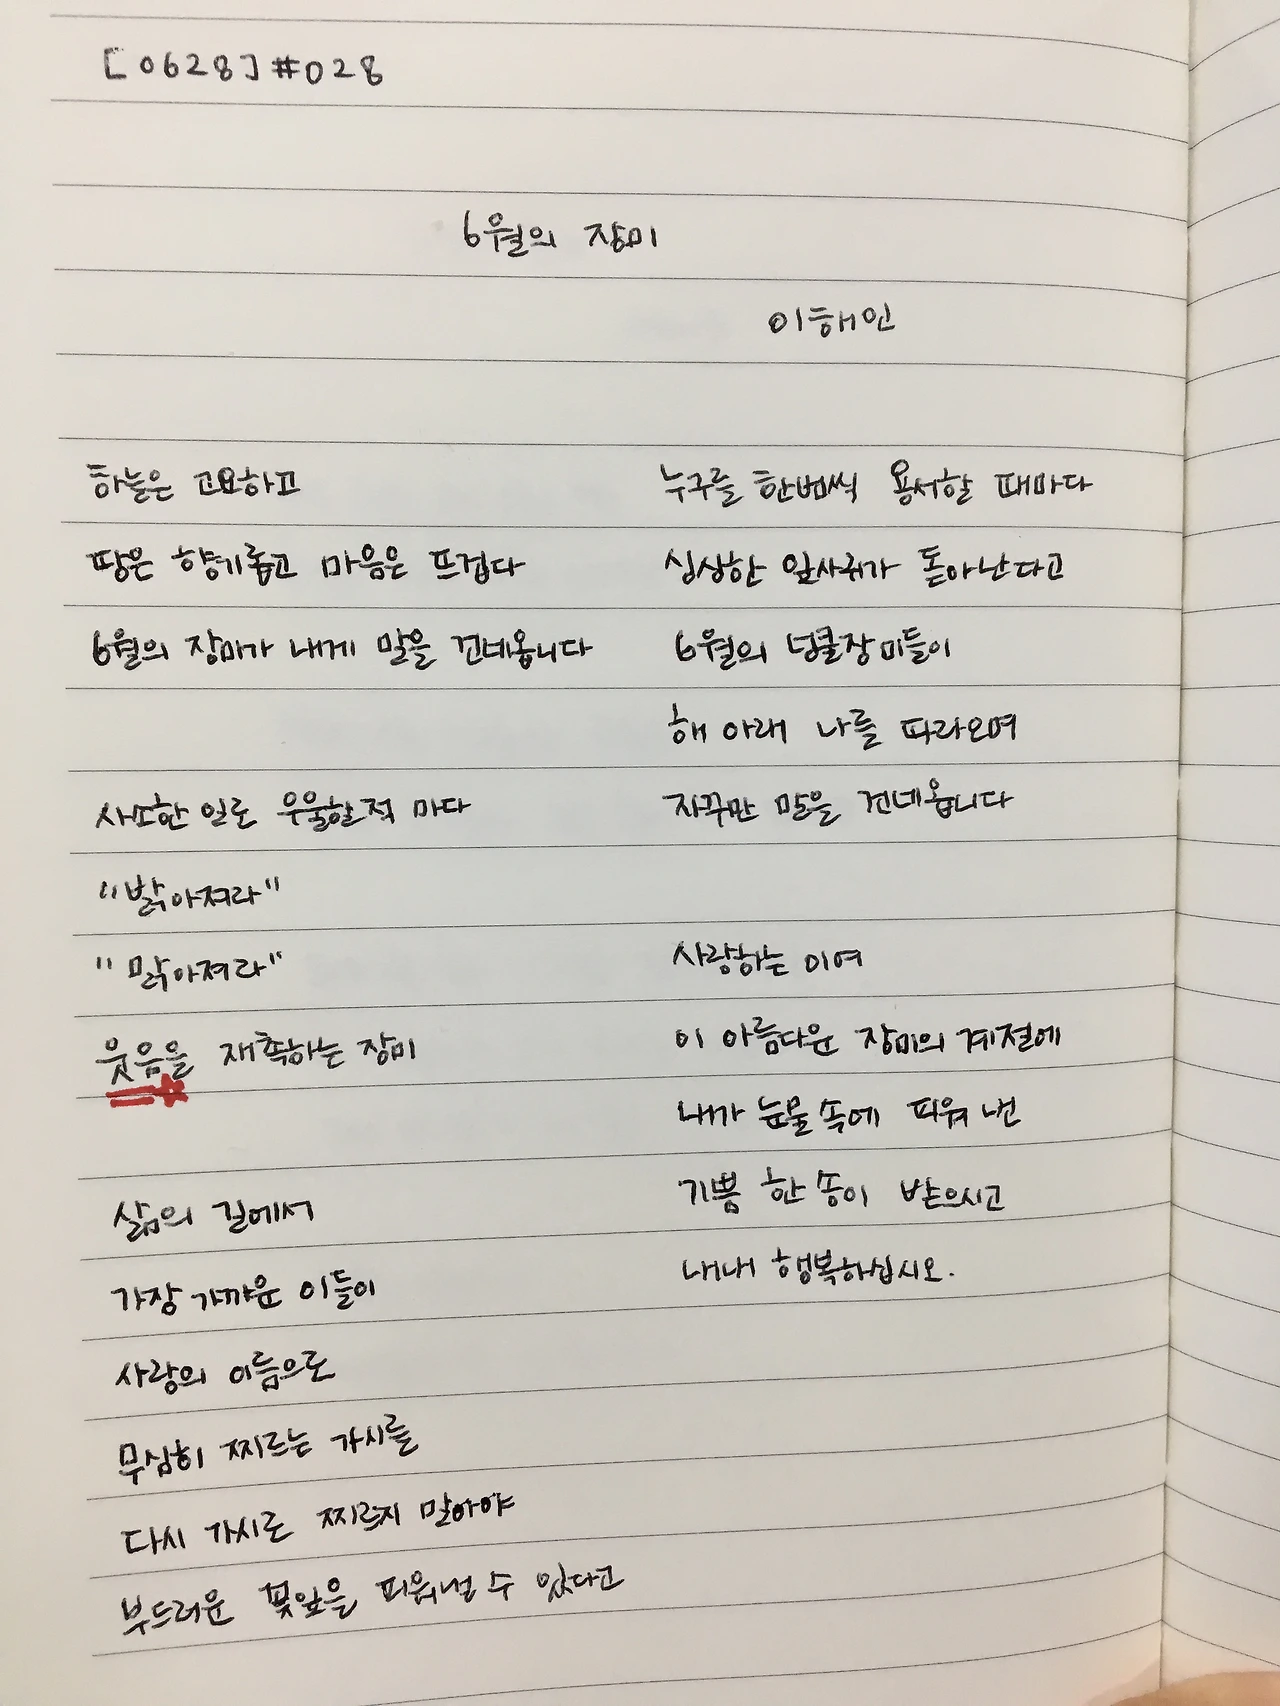 [0628]#028
6월의 장미
이해인
하늘은 고요하고
땅은 향기롭고 마음은 뜨겁다
6월의 장미가 내게 말을 건네옵니다
사소한 일로 우울할적 마다
"밝아져라"
"맑아져라"
웃음을 재촉하는 장미
삶의 길에서
가장 가까운 이들이
사랑의 이름으로
무심히 찌르는 가시를
다시 가시로 찌르지 말아야
부드러운 꽃잎을 피워낼 수 있다고
누구를 한번씩 용서할 때마다
싱싱한 잎사귀가 돋아난다고
6월의 넝쿨장미들이
해 아래 나를 따라오며
자꾸만 말을 건네옵니다
사랑하는 이여
이 아름다운 장미의 계절에
내가 눈물 속에 피워 낸
기쁨 한 송이 받으시고
내내 행복하십시오.